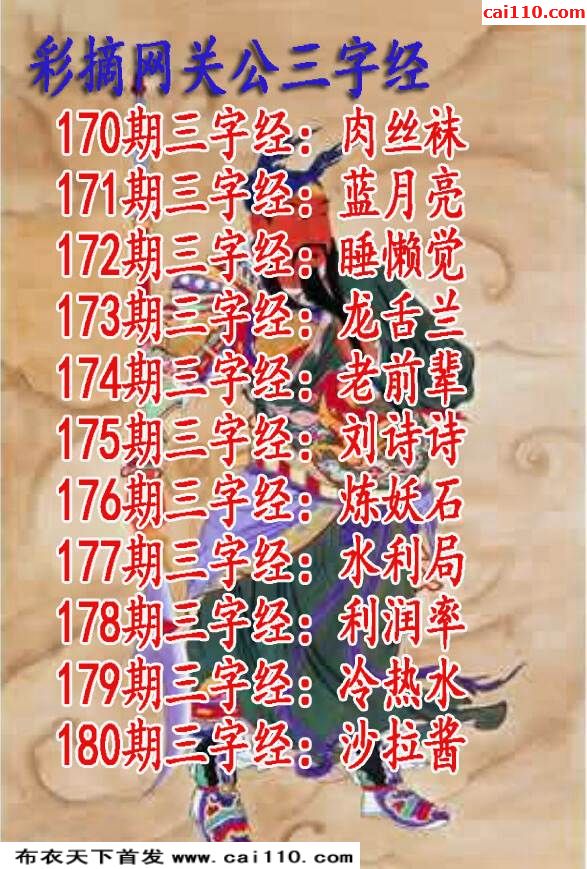 cai110.com
彩摘网关公三字经
170期三字经：肉丝袜
171期三字经：蓝月亮
172期三字经：睡懒觉
173期三字经：龙舌兰
174期三字经：老前辈
175期三字经：刘诗诗
176期三字经：炼妖石
177期三字经：水利局
178期三字经：利润率
179期三字经：冷热水
180期三字经：沙拉酱
布衣天下首发 www.cai110.com